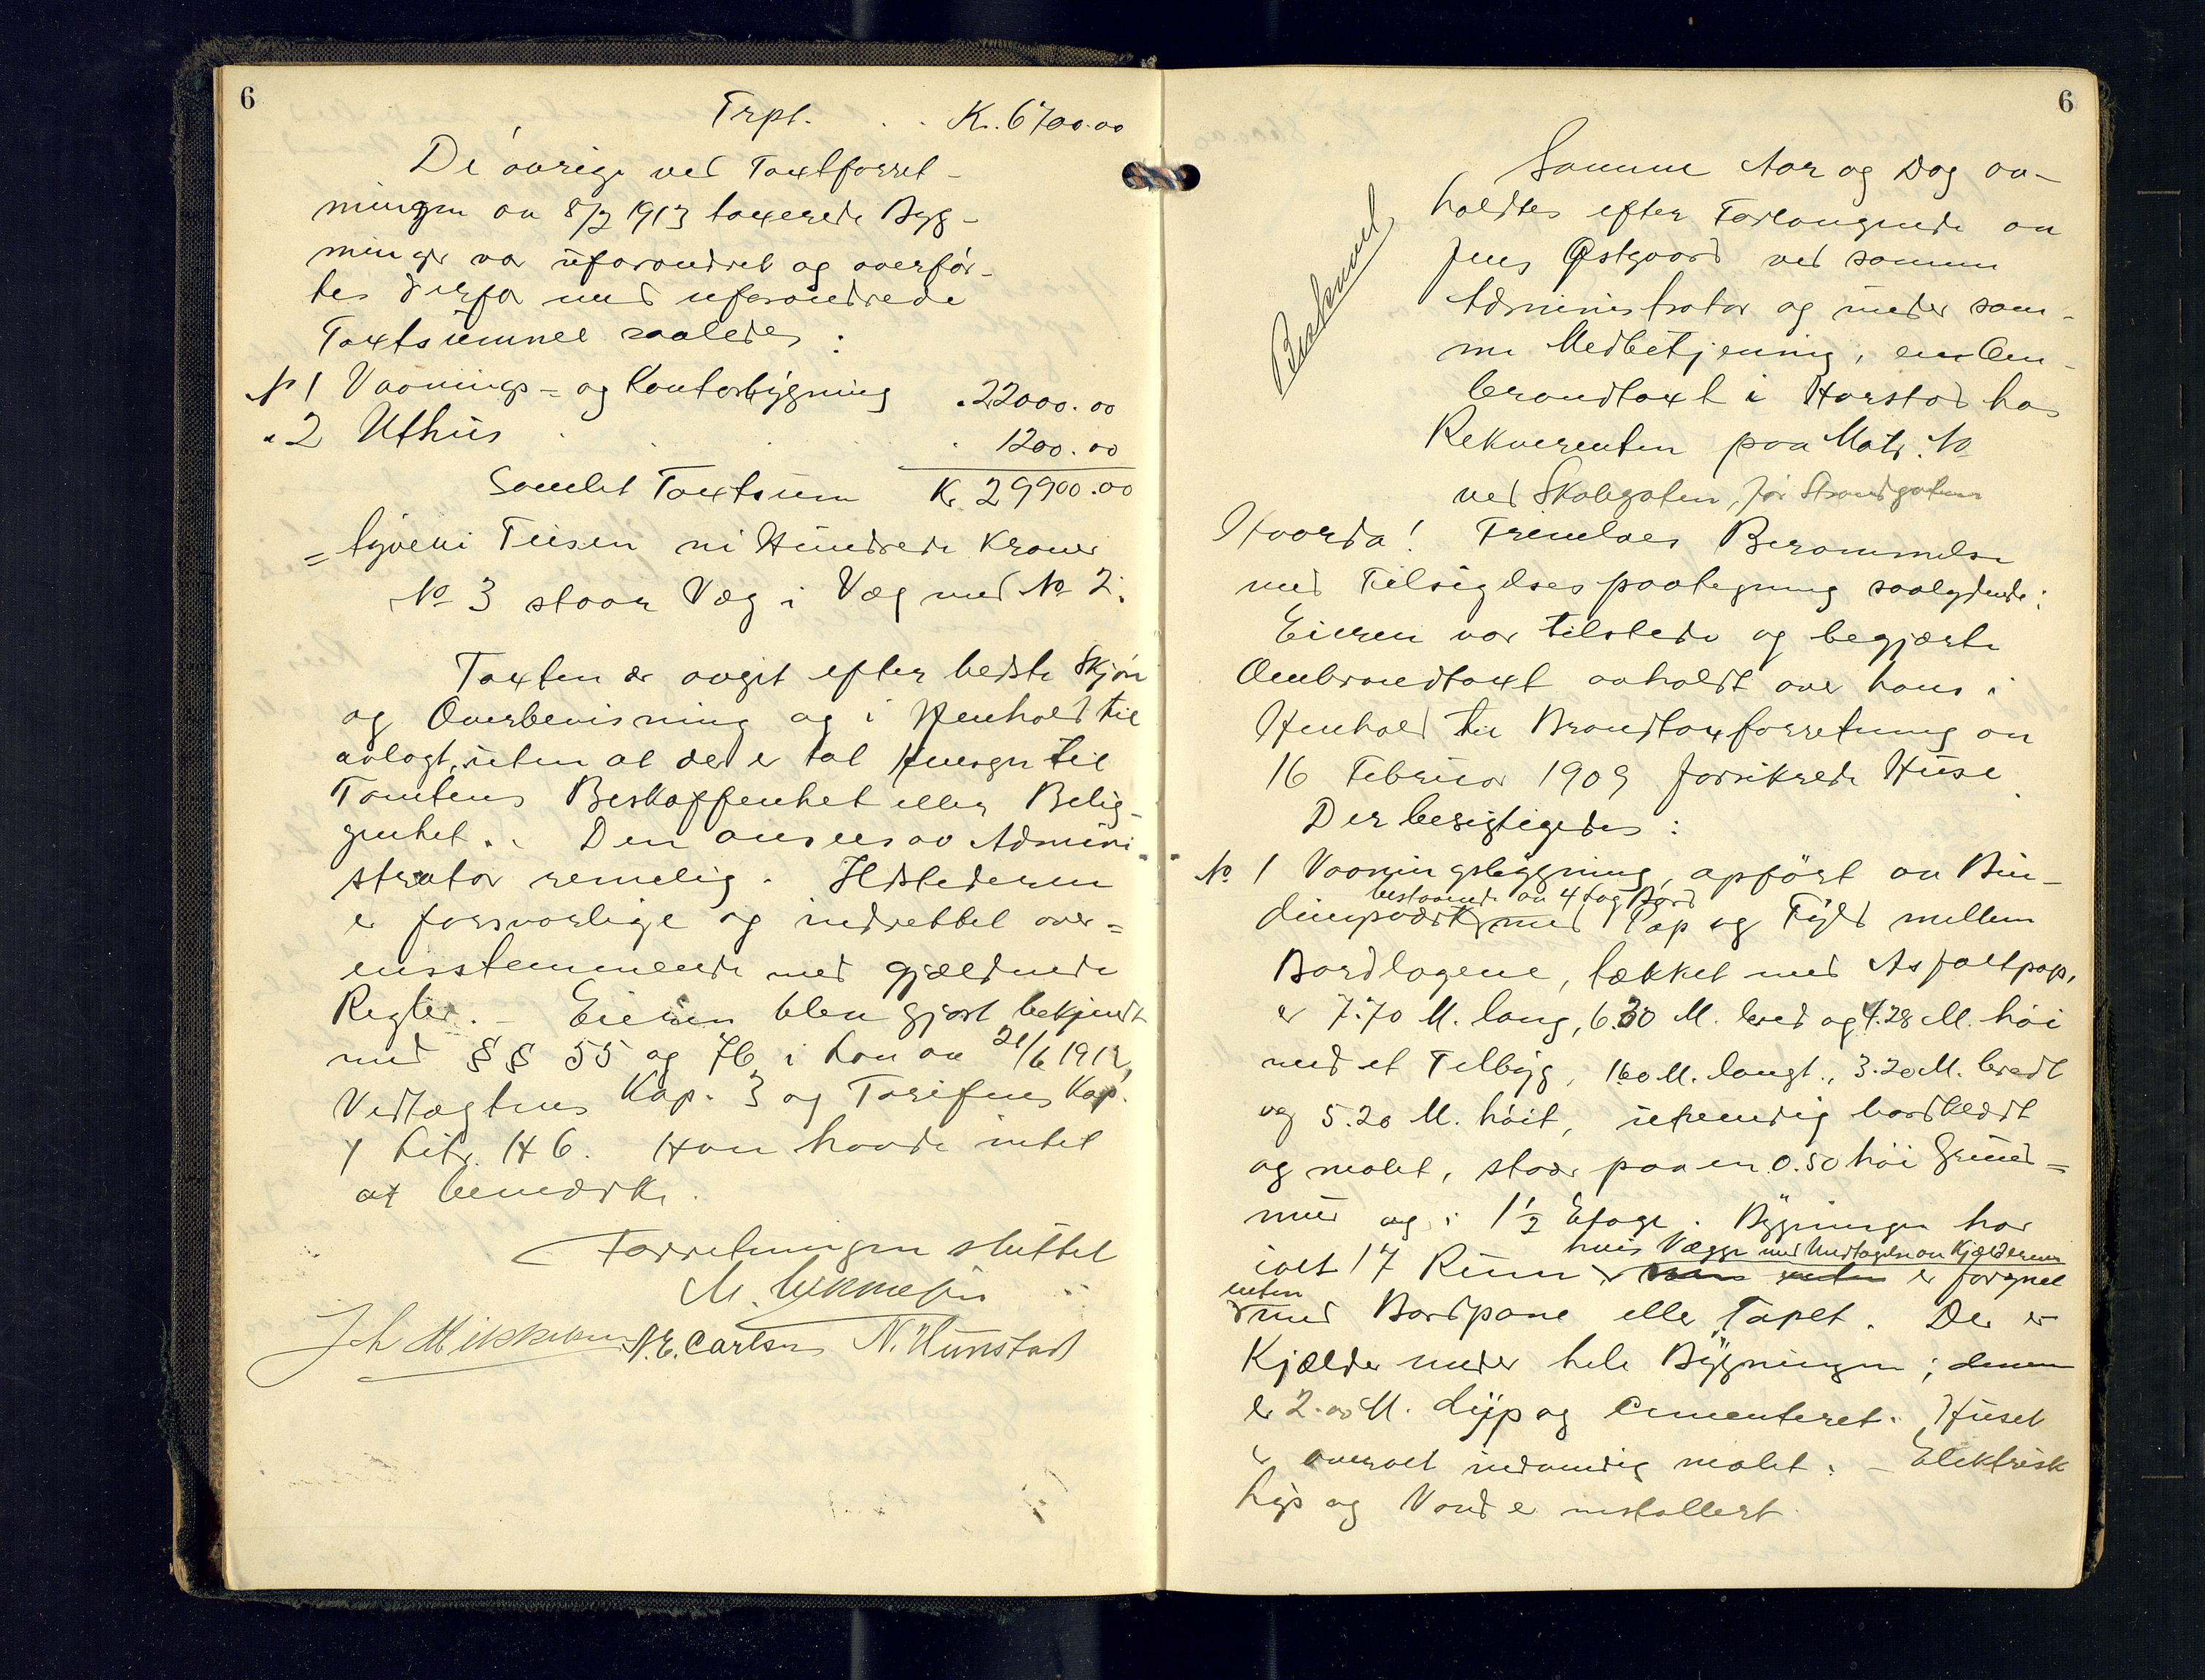 6
Trpt. . . Kr. 6700.00
De øvrige ved Taxtforret-
ningen av 8/2 1913 taxerede Byg-
ninger var uforandret og overfør-
tes derfor med uforandrede
Taxtsummer saaledes :
№ 1 Vaanings- og Kontorbygning . 22000.00
" 2 Uthus . . . 1200.00
Samlet Taxtsum Kr. 29900.00
= tyveni Tusen ni Hundrede Kroner
№ 3 staar Væg i Væg med № 2.
Taxten er avgit efter bedste Skjøn
og Overbevisning og i Henhold til
avlagt, uten at der er tat Hensyn til
Tomtens Beskaffenhet eller Belig-
genhet. Den ansees av Admini-
strator rimelig. Ildstederne
er forsvarlige og indrettet over=
ensstemmende med gjældende
Regler. – Eieren blev gjort bekjendt
med §§ 55 og 76 i Lov av 21/6 1912,
Vedtægtens Kap. 3 og Tarifens Kap.
4 Litr. H 6. Han havde intet
at bemærke.
Forretningen sluttet
M.
Joh Mikkelsen N. E. Carlsen N. Hunstad
6
Samme Aar og Dag av-
holdtes efter Forlangende av
Jens Østgaard ved samme
Administrator og under sam-
me Medbetjening, en Om-
brandtaxt i Harstad hos
Rekvirenten paa Matr. №
ved Skolegaten, før Strandgaten
Beskrevet
Hvorda! Fremlaes Berammelse
med Tilsigelsespaategning saalydende:
Eieren var tilstede og begjærte
Ombrandtaxt avholdt over hans i
Henhold til Brandtaxforretning av
16 Februar 1909 forsikrede Huse.
Der besigtigedes :
№ 1 Vaaningsbygning, opført av Bin-
bestaaende av 4 lag Bord
dingsværk med Pap og Fyld mellem
Bordlagene, tækket med Asfaltpap,
er 7.70 M. lang, 6.30 M. bred og 4.28 M. høi
med et Tilbyg, 1.60 M. langt, 3.20 M. bredt
og 5.20 M. høit, utvendig bordklædt
og malet, staar paa en 0.50 høi Grund=
mur og i 1½ Etage. Bygningen har
hvis Vægge med Undtagelse av Kjælderen
ialt 17 Rum er forsynet
enten
med Bordpane eller Tapet. Der er
Kjælder under hele Bygningen ; denne
er 2.00 M. dyp og cementeret. Huset
er overalt indvendig malet. – Elektrisk
Lys og Vand er installert.